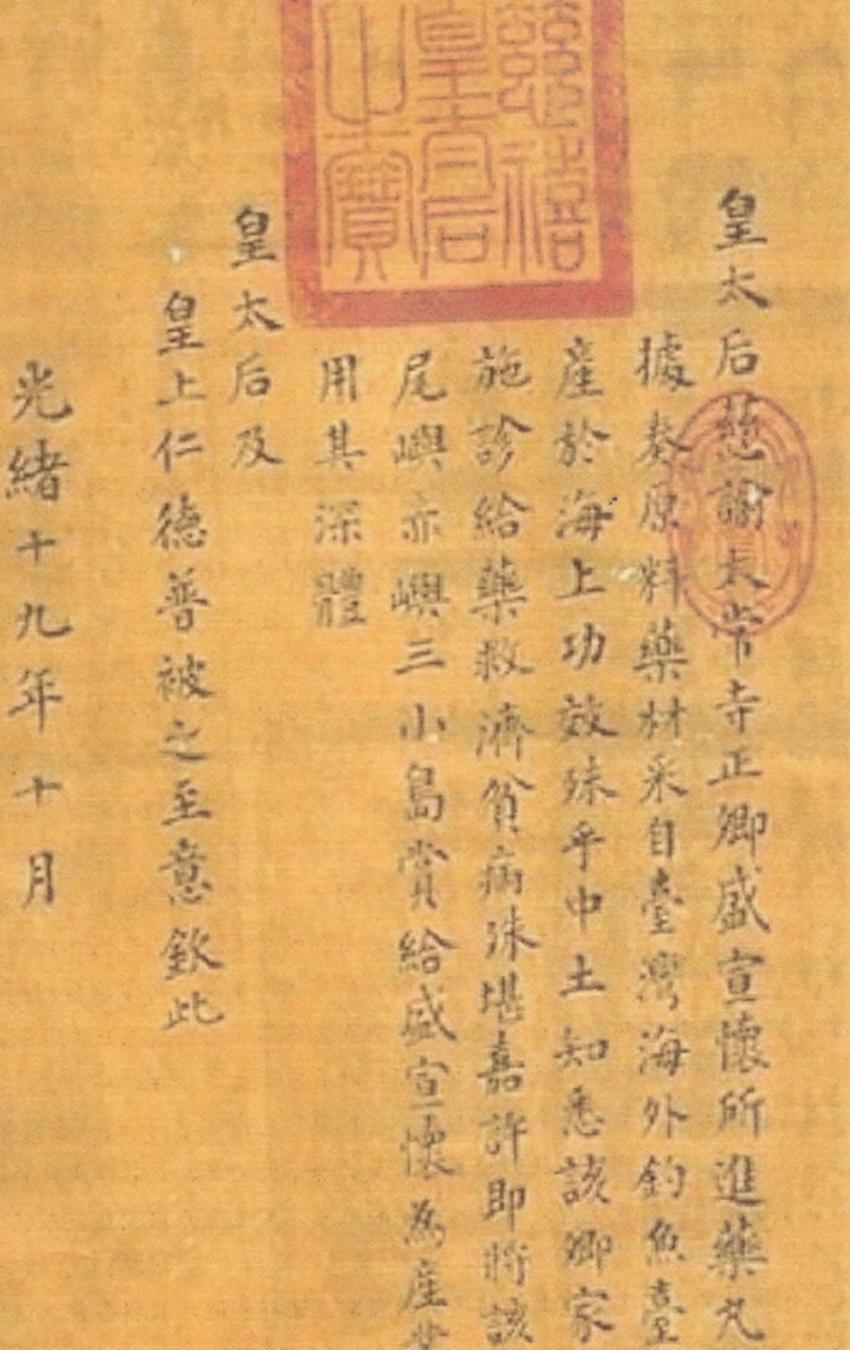 慈禧
皇太后
之寶
皇太后慈諭長常寺正卿盛宣懷所進藥丸
據奏原料藥材采自臺灣海外釣魚臺
產於海上功效殊乎中土知悉該卿家
施診給藥救濟貧病殊堪嘉許即將該
尾嶼赤嶼三小島賞給盛宣懷為產業
用其深體
皇太后及
皇上仁德普被之至意欽此
光緒十九年十月